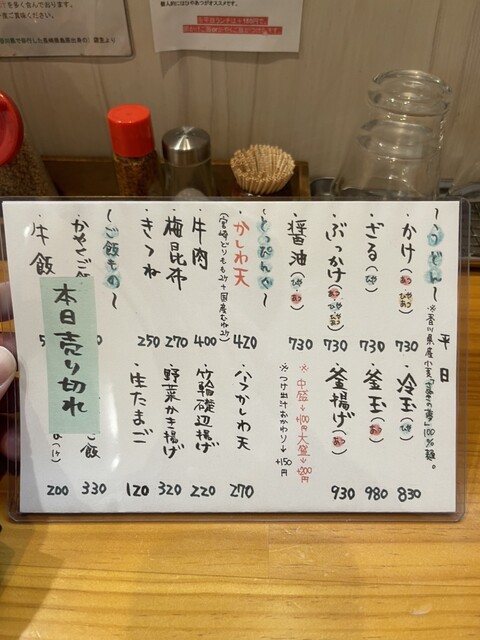 平日
〜うどん〜
※香川県産小麦「さぬきの夢」100%麺。
・かけ(あつ ひやあつ ひや) 730
・冷玉(ひや) 830
・ざる(ひや) 730
・釜玉(あつ) 980
・ぶっかけ(あつ ひや ひやあつ) 730
・釜揚げ(あつ) 930
・醤油(ひや あつ) 730
※中盛→+100円 大盛→+200円
※つけ出汁おかわり→+150円
〜とっぴんぐ〜
・かしわ天 420
・ハーフかしわ天 270
・牛肉 400
・竹輪磯辺揚げ 220
・梅昆布 270
・野菜かき揚げ 320
・きつね 250
・生たまご 120
〜ご飯もの〜
・かやくご
飯 330
・牛飯
200
本日売り切れ